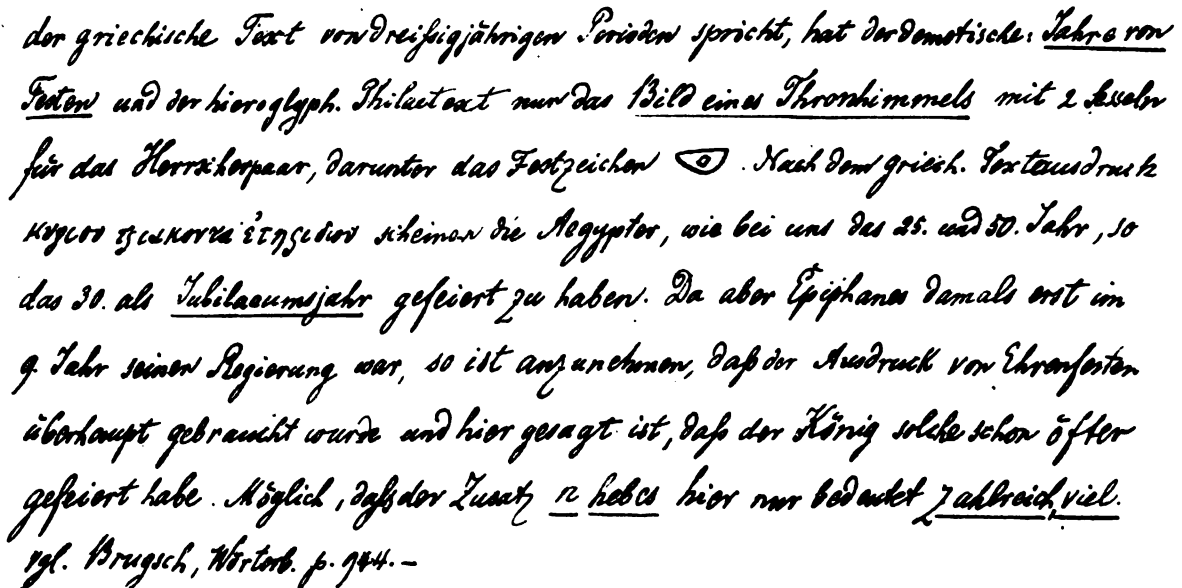 der griechische Text von dreißigjährigen Perioden spricht, hat der demotische: Jahre von
Festen und der hieroglyph. Philaetext nur das Bild eines Thronhimmels mit 2 Sesseln
für das Herrscherpaar, darunter das Festzeichen . Nach dem griech. Textausdruck
κυριου τριακονταἐτηριδων scheinen die Aegypter, wie bei uns das 25. und 50. Jahr, so
das 30. als Jubilaeumsjahr gefeiert zu haben. Da aber Epiphanes damals erst im
9. Jahr seiner Regierung war, so ist anzunehmen, daß der Ausdruck von Ehrenfesten
überhaupt gebraucht wurde und hier gesagt ist, daß der König solche schon öfter
gefeiert habe. Möglich, daß der Zusatz n hebcs hier nur bedeutet zahlreich, viel.
vgl. Brugsch, Wörterb. p. 944. –